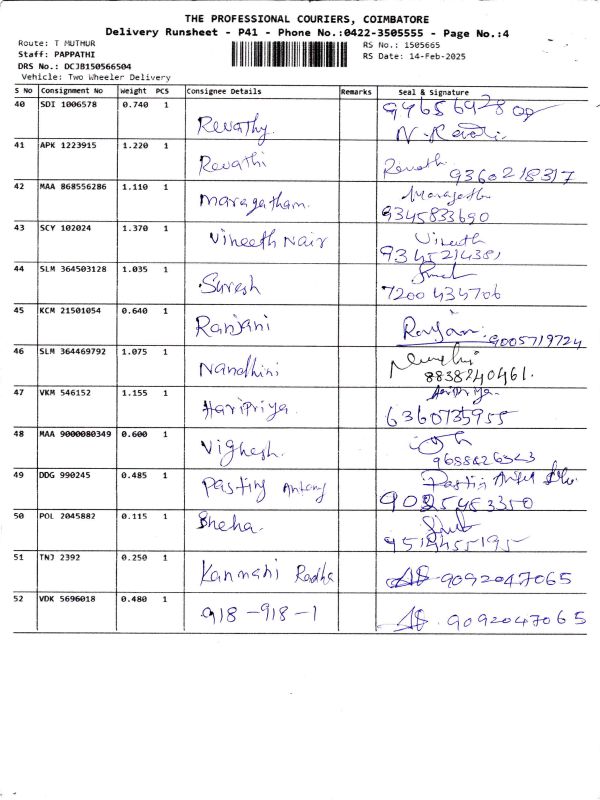 THE PROFESSIONAL COURIERS, COIMBATORE
Delivery Runsheet - P41 - Phone No.:0422-3505555 - Page No.:4
Route: T MUTHUR
RS No.: 1505665
Staff: PAPPATHI
RS Date: 14-Feb-2025
DRS No.: DCJB150566504
Vehicle: Two Wheeler Delivery
S No Consignment No Weight PCS Consignee Details Remarks Seal & signature
40 SDI 1006578 0.740 1 Revathy.
41 APK 1223915 1.220 1 Revathi 9360218317
42 MAA 868556286 1.110 1 Maragatham. 9345833690
43 SCY 102024 1.370 1 Vineeth Nair Vineeth
44 SLM 364503128 1.035 1 Suresh 7200434706
45 KCM 21501054 0.640 1 Ranjani 9005719724
46 SLM 364469792 1.075 1 Nandhini 8838240461.
47 VKM 546152 1.155 1 Haripriya. Haripriya. 6360735955
48 MAA 9000080349 0.600 1 Vighesh.
49 DDG 990245 0.485 1 Pasting Antony 9025453350
50 POL 2045882 0.115 1 Sneha. 9514455195
51 TNJ 2392 0.250 1 Kanmani Radha 9092047065
52 VDK 5696018 0.480 1 918-918-1 9092047065